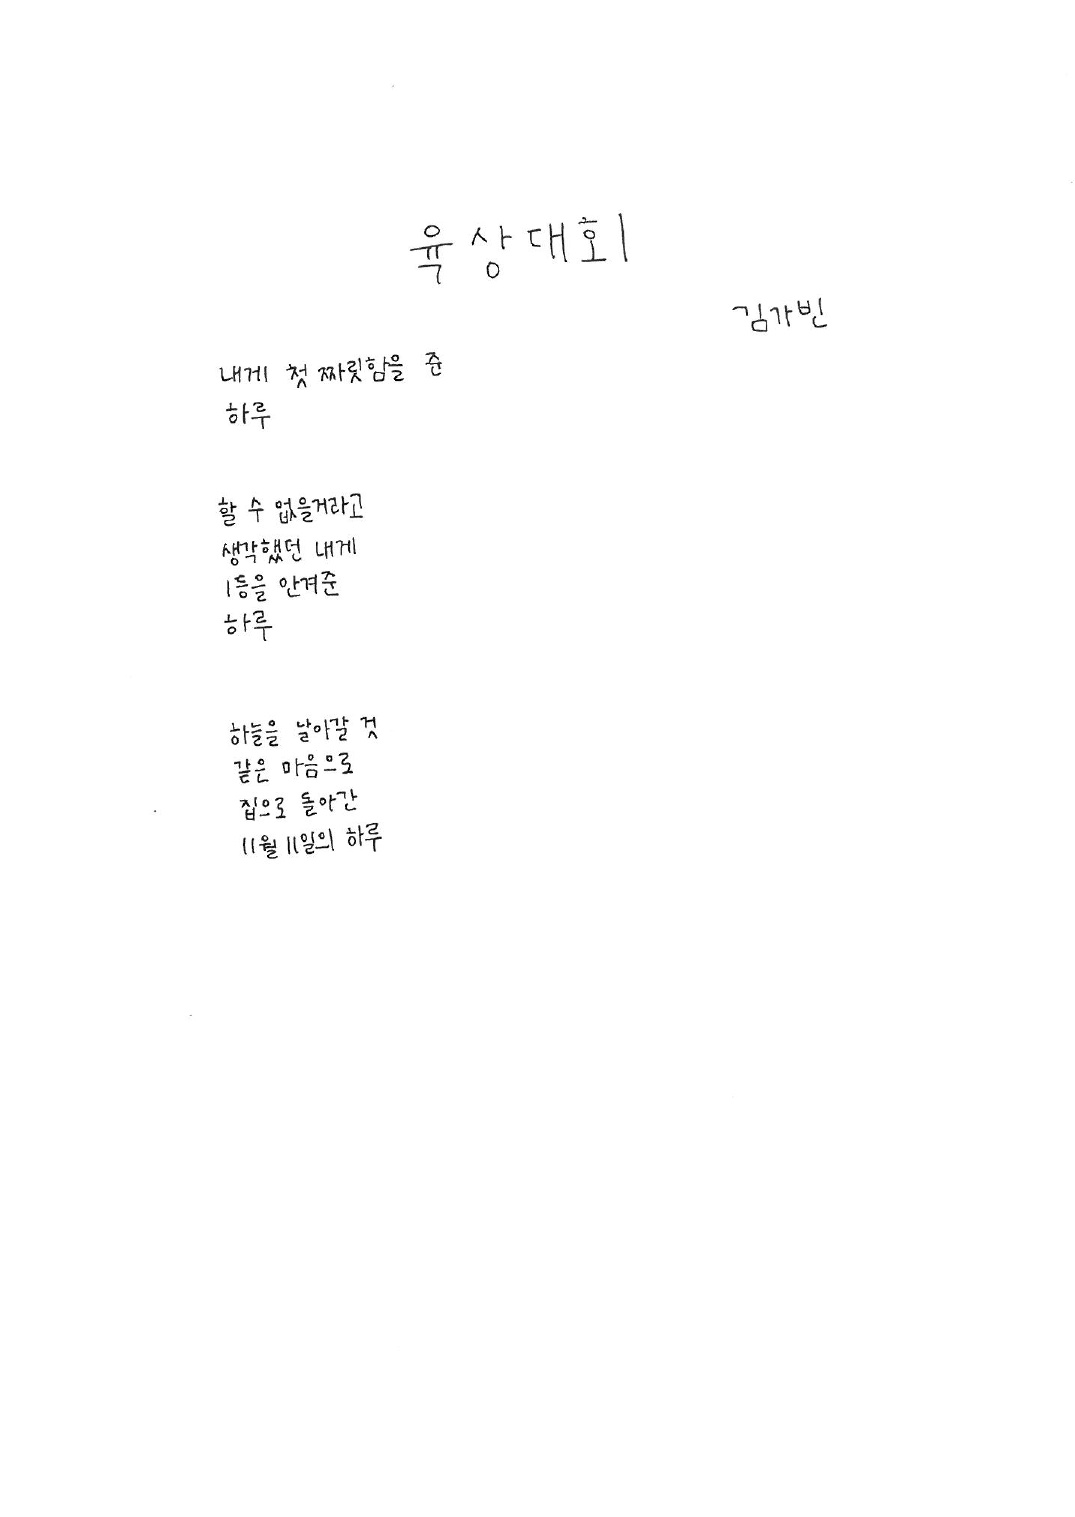 육상대회
김가빈
내게 첫 짜릿함을 준
하루
할 수 없을거라고
생각했던 내게
1등을 안겨준
하루
하늘을 날아갈 것
같은 마음으로
집으로 돌아간
11월 11일의 하루